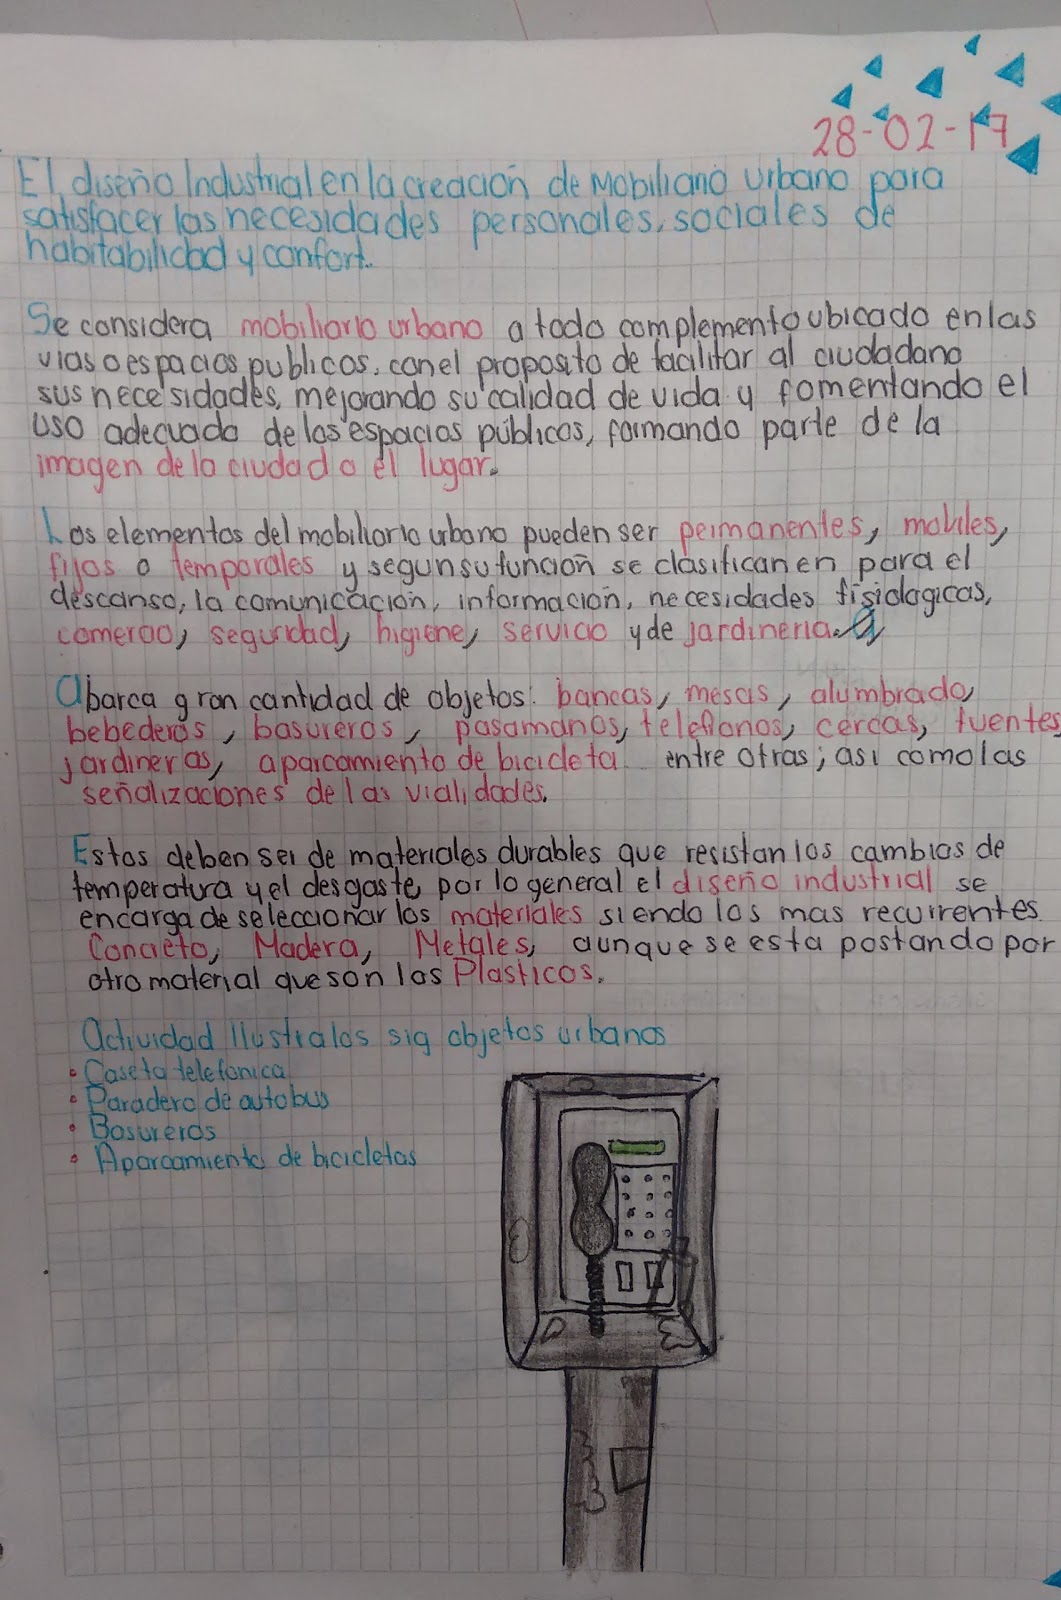 28-02-17
El diseño Industrial en la creación de Mobiliario Urbano para
satisfacer las necesidades personales, sociales de
habitabilidad y confort.
Se considera mobiliario urbano a todo complemento ubicado en las
vias o espacios publicos, con el proposito de facilitar al ciudadano
sus necesidades, mejorando su calidad de vida y fomentando el
uso adecuado de los espacios públicos, formando parte de la
imagen de la ciudad o el lugar.
Los elementos del mobiliario urbano pueden ser permanentes, mobiles,
fijos o temporales y segun su función se clasifican en para el
descanso, la comunicación, información, necesidades fisiologicas,
comercio, seguridad, higiene, servicio y de jardineria.
Abarca gran cantidad de objetos: bancas, mesas, alumbrado,
bebederos, basureros, pasamanos, telefonos, cercas, fuentes
jardineras, aparcamiento de bicicleta entre otras; asi como las
señalizaciones de las vialidades.
Estos deben ser de materiales durables que resistan los cambios de
temperatura y el desgaste, por lo general el diseño industrial se
encarga de seleccionar los materiales siendo los mas recurrentes
Concreto, Madera, Metales, aunque se esta postando por
otro material que son los Plasticos.
Actividad Ilustra los sig objetos urbanos
• Caseta telefonica
• Paradero de autobus
• Basureros
• Aparcamiento de bicicletas